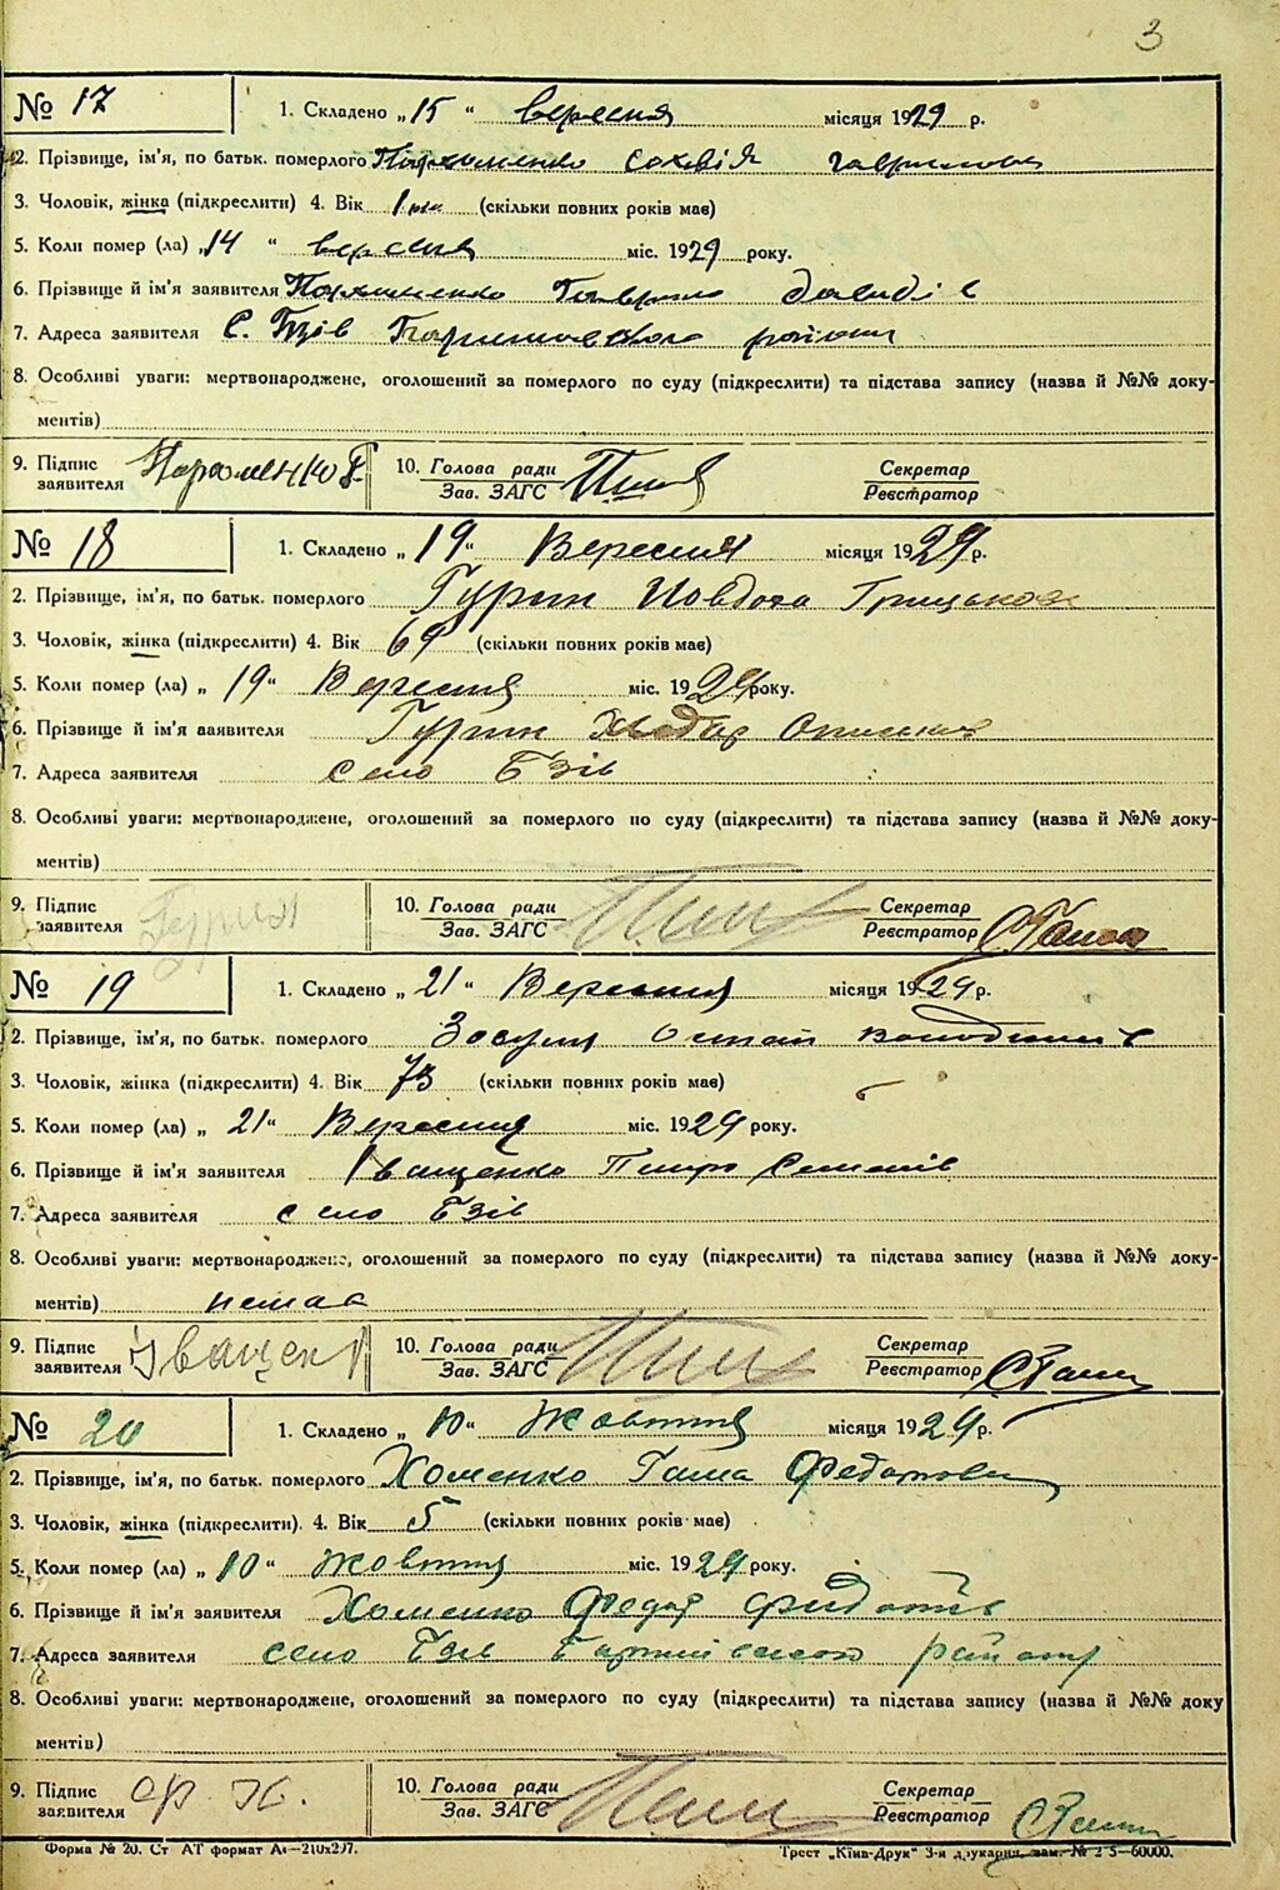 3
№ 17 1. Складено „15“ вересня місяця 1929 р.
2. Прізвище, ім'я, по батьк. померлого Пархоменко Сохвія Гаврилова
3. Чоловік, жінка (підкреслити) 4. Вік 1 рік (скільки повних років має)
5. Коли помер (ла) „14“ вересня міс. 1929 року.
6. Прізвище й ім'я заявителя Пархоменко Гаврило Давидів
7. Адреса заявителя С. Бзів району
8. Особливі уваги: мертвонароджене, оголошений за померлого по суду (підкреслити) та підстава запису (назва й №№ доку-
ментів)
9. Підпис заявителя 10. Голова ради Зав. ЗАГС Секретар Реєстратор
№ 18 1. Складено „19“ Вересня місяця 1929 р.
2. Прізвище, ім'я, по батьк. померлого Гурин Йовдоха Грицькова
3. Чоловік, жінка (підкреслити) 4. Вік 69 (скільки повних років має)
5. Коли помер (ла) „19“ Вересня міс. 1929 року.
6. Прізвище й ім'я заявителя Гурин
7. Адреса заявителя село Бзів
8. Особливі уваги: мертвонароджене, оголошений за померлого по суду (підкреслити) та підстава запису (назва й №№ доку-
ментів)
9. Підпис заявителя Гурин 10. Голова ради Зав. ЗАГС Секретар Реєстратор
№ 19 1. Складено „21“ Вересня місяця 1929 р.
2. Прізвище, ім'я, по батьк. померлого Зосуля Остап
3. Чоловік, жінка (підкреслити) 4. Вік 73 (скільки повних років має)
5. Коли помер (ла) „21“ Вересня міс. 1929 року.
6. Прізвище й ім'я заявителя Іващенко Семенів
7. Адреса заявителя село Бзів
8. Особливі уваги: мертвонароджене, оголошений за померлого по суду (підкреслити) та підстава запису (назва й №№ доку-
ментів) немає
9. Підпис заявителя Іващенк 10. Голова ради Зав. ЗАГС Секретар Реєстратор
№ 20 1. Складено „10“ Жовтня місяця 1929 р.
2. Прізвище, ім'я, по батьк. померлого Хоменко Гаша Федорова
3. Чоловік, жінка (підкреслити). 4. Вік 5 (скільки повних років має)
5. Коли помер (ла) „10“ Жовтня міс. 1929 року.
6. Прізвище й ім'я заявителя Хоменко Федір
7. Адреса заявителя село Бзів району
8. Особливі уваги: мертвонароджене, оголошений за померлого по суду (підкреслити) та підстава запису (назва й №№ доку
ментів)
9. Підпис заявителя Ф. Х. 10. Голова ради Зав. ЗАГС Секретар Реєстратор
Форма № 20. Ст АТ формат А4—210х297. Трест „Київ-Друк“ 3-я друкарня, зам. № 60000.